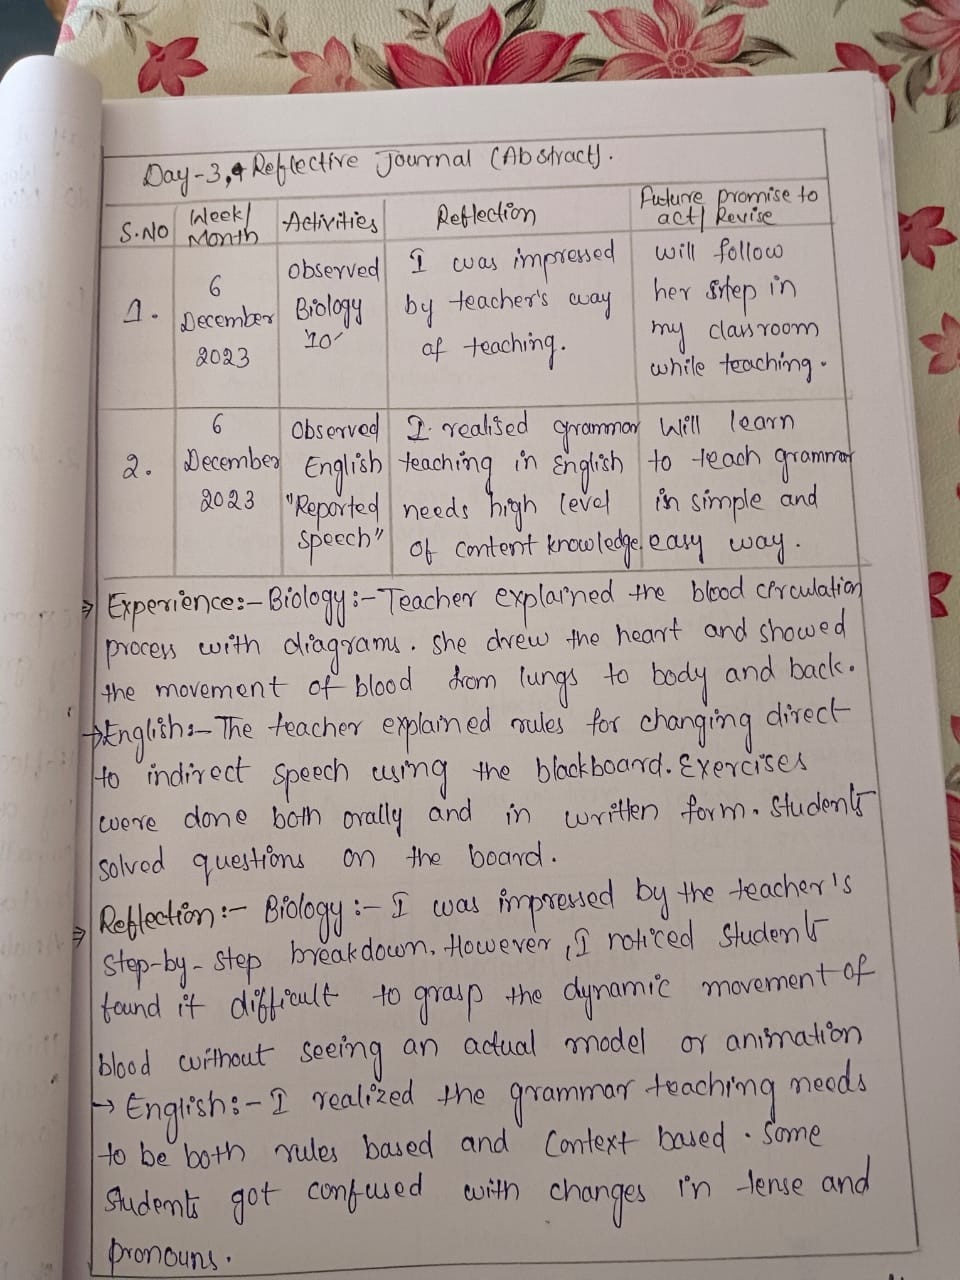 Day-3,4 Reflective Journal (Abstract).
S.No | Week/Month | Activities | Reflection | Future promise to act/Revise
1. | 6 December 2023 | Observed Biology 10 | I was impressed by teacher's way of teaching. | will follow her step in my classroom while teaching.
2. | 6 December 2023 | Observed English "Reported speech" | I realised grammar teaching in English needs high level of content knowledge. | Will learn to teach grammar in simple and easy way.
⇒ Experience:- Biology:- Teacher explained the blood circulation
process with diagrams. She drew the heart and showed
the movement of blood from lungs to body and back.
→ English:- The teacher explained rules for changing direct
to indirect speech using the blackboard. Exercises
were done both orally and in written form. Students
solved questions on the board.
⇒ Reflection:- Biology:- I was impressed by the teacher's
step-by-step breakdown. However, I noticed students
found it difficult to grasp the dynamic movement of
blood without seeing an actual model or animation
→ English:- I realized the grammar teaching needs
to be both rules based and context based. Some
students got confused with changes in tense and
pronouns.